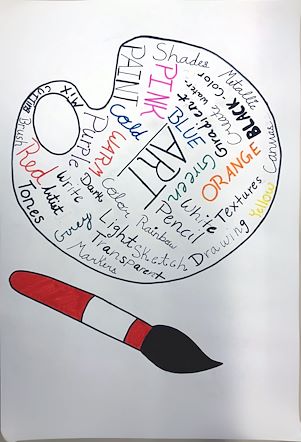 Shades
Metallic
PAINT
PINK
Color
Water
Create
Gradient
BLACK
Canvas
MIX
CUTTING
Brush
Cold
BLUE
Purple
WARM
ART
ORANGE
Red
Green
Dark
Color
Write
Artist
Tones
White
Textures
Yellow
Pencil
Grey
Light
Rainbow
Drawing
Sketch
Transparent
Markers